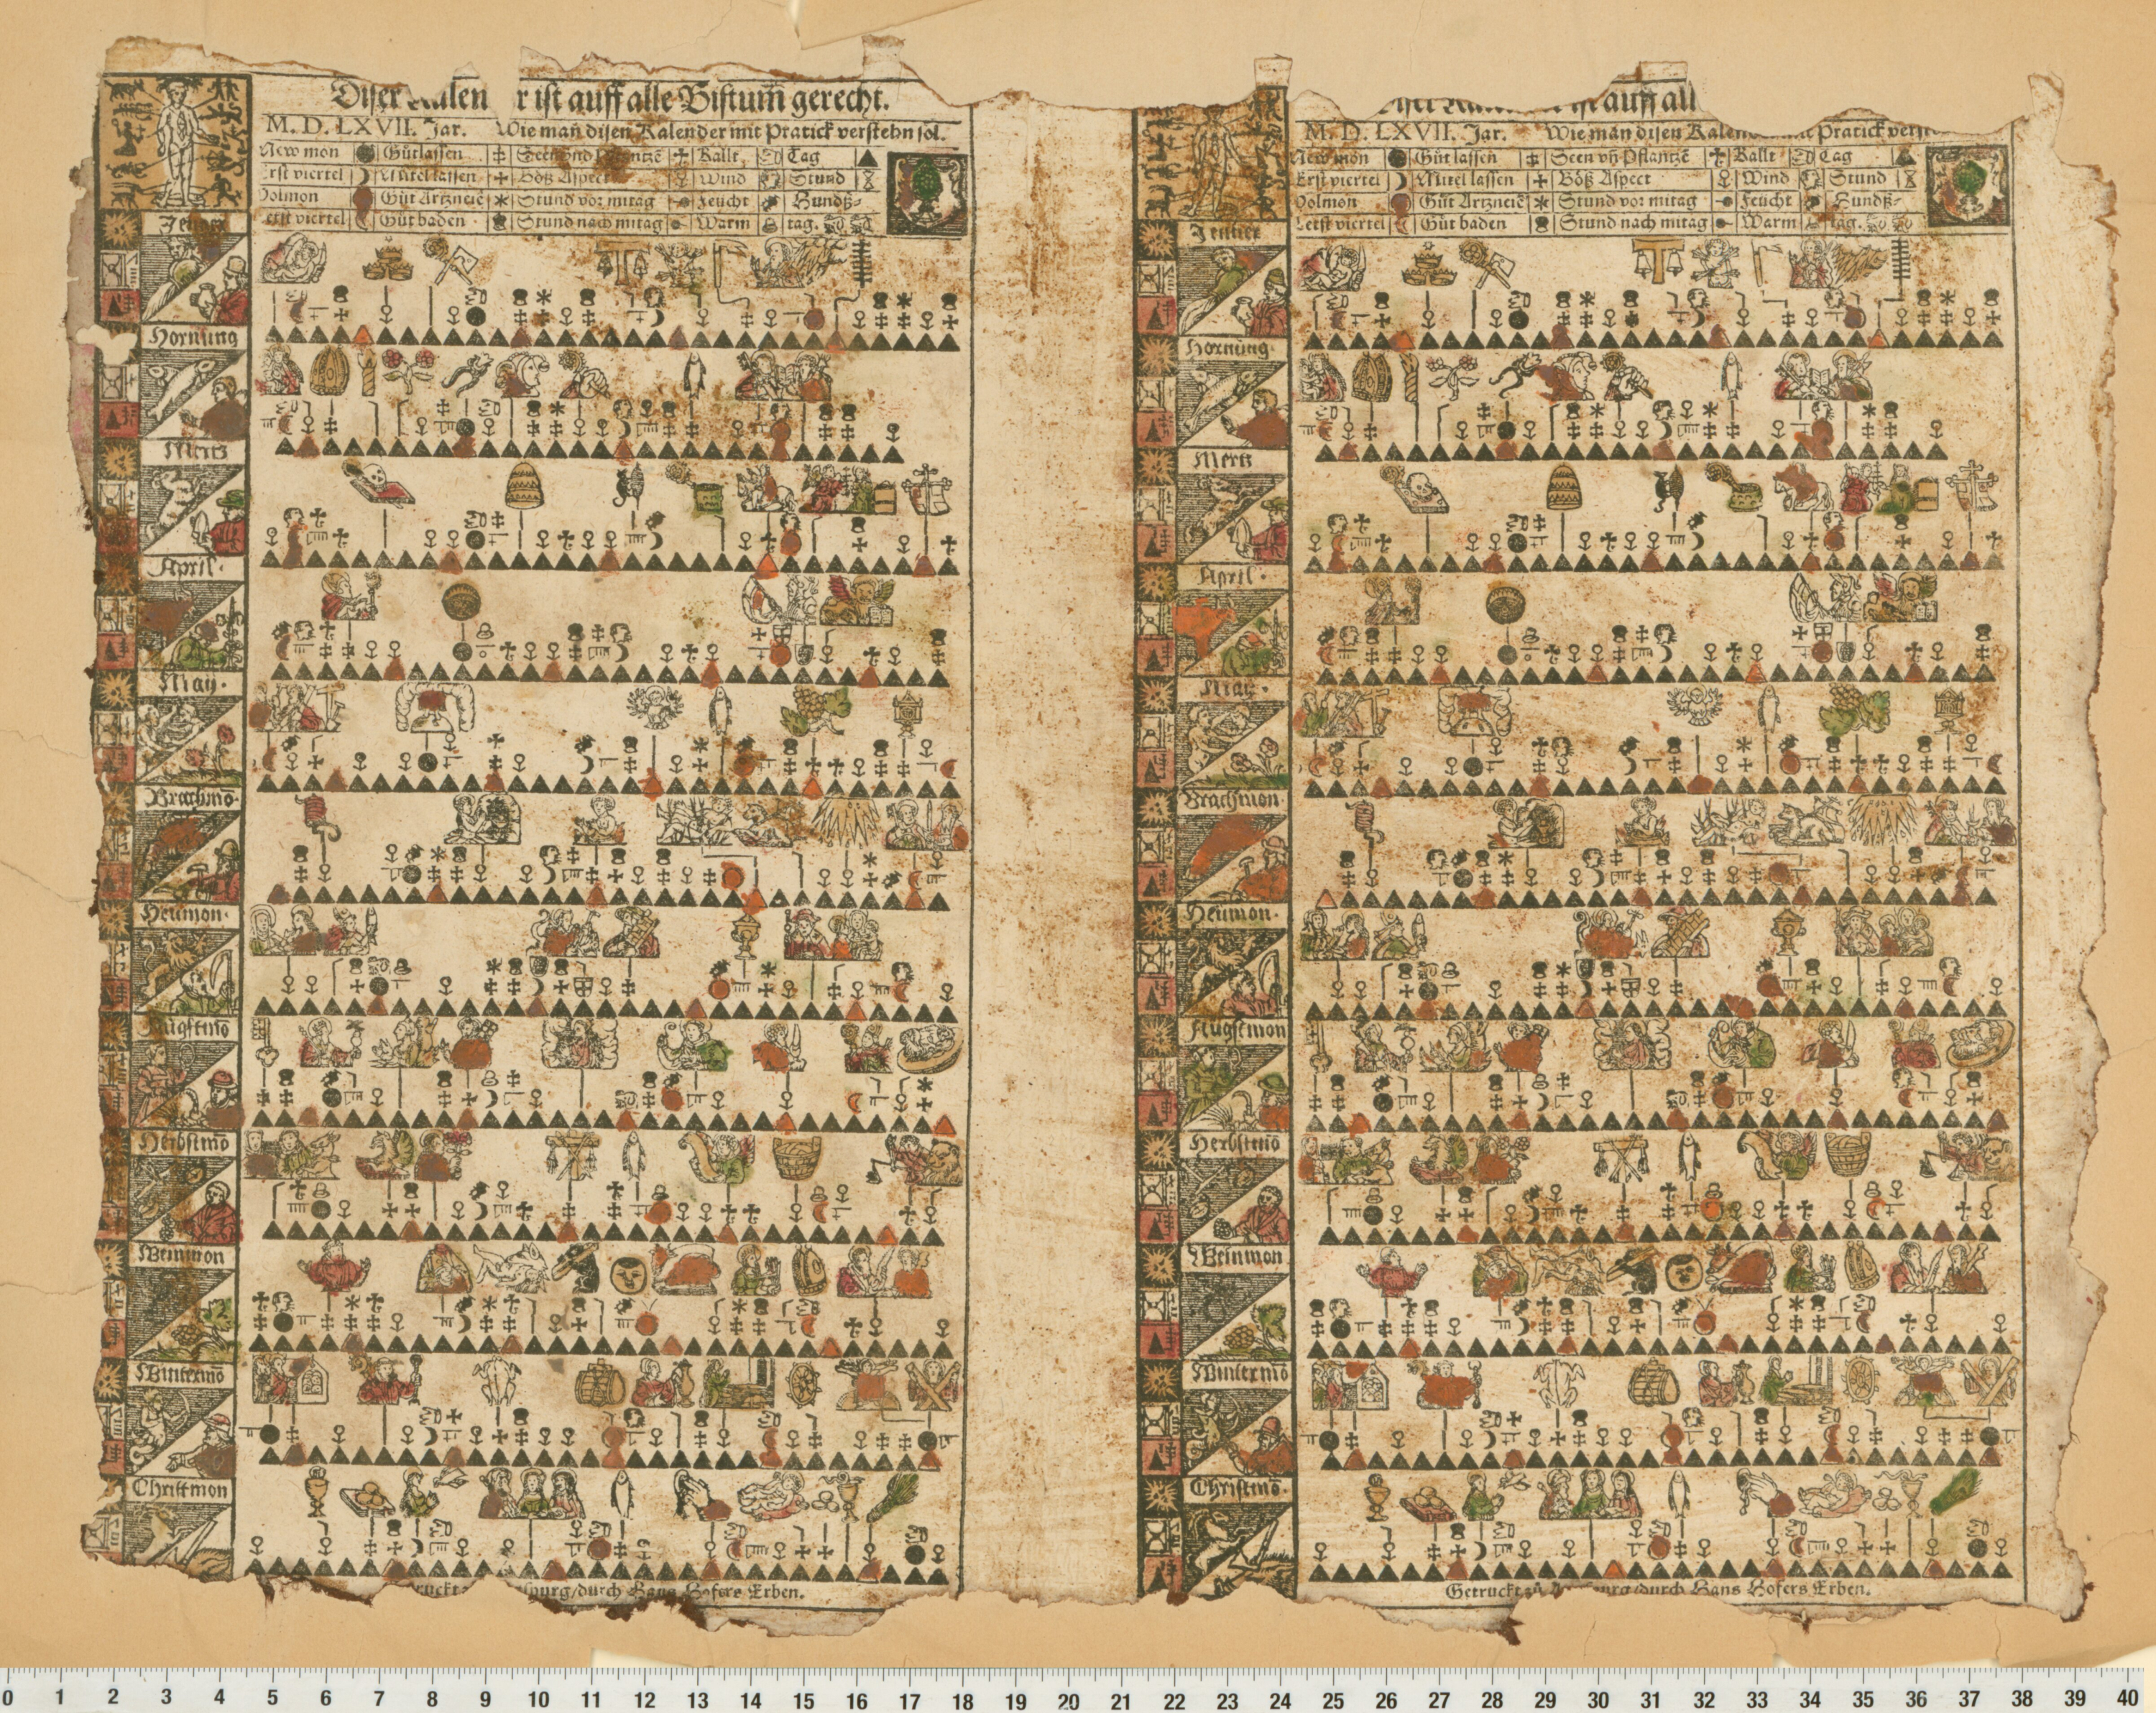 Diser Kalen r ist auff alle Bistum̄ gerecht.
M. D. LXVII. Jar. Wie man̄ disen Kalender mit Pratick verstehn sol.
New mon Gůtlassen Kallt Tag
rst viertel Mittel lassen Böß Aspect Wind Stund
Volmon Gůt Artzneiē Stund vor mitag Feücht Hundß-
etst viertel Gůt baden Stund nach mitag Warm tag.
Jenner
Hornung
Mertz
April.
May.
Brachmō.
Heümon.
Augstmō
Herbstmō
Weinmon
Wintermō
Christmon
ruckt burg/durch Hans Hofers Erben.
auff all
M. D. LXVII. Jar. Wie man disen Kalen Pratick verst
New mon Gůt lassen Seen vn̄ Pflantzē Kallt Tag
Erst viertel Mitel lassen Böß Aspect Wind Stund
Volmon Gůt Artzneiē Stund vor mitag Feücht Hundß-
Letst viertel Gůt baden Stund nach mitag Warm tag.
Jenner
Hornung.
Mertz
April.
May.
Brachmon.
Heümon.
Augstmon
Herbstmō
Weinmon
Wintermō
Christmō.
Getruckt zů urg/durch Hans Hofers Erben.
0 1 2 3 4 5 6 7 8 9 10 11 12 13 14 15 16 17 18 19 20 21 22 23 24 25 26 27 28 29 30 31 32 33 34 35 36 37 38 39 40